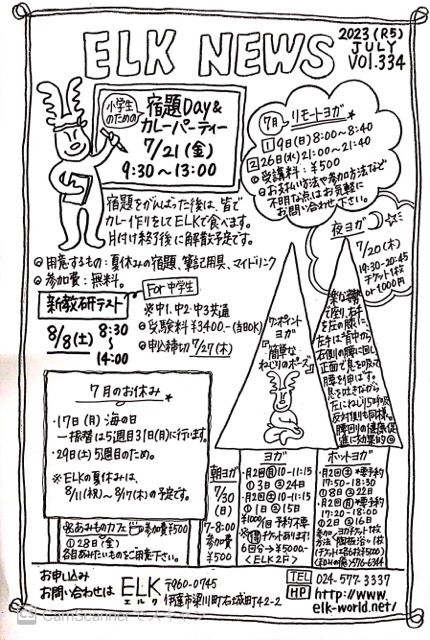 ELK NEWS
2023(R5)
JULY
VOl.334
小学生
のための
宿題Day&
カレーパーティー
7/21(金)
9:30~13:00
宿題をがんばった後は、皆で
カレー作りをしてELKで食べます。
片付け終了後に解散予定です。
◎用意するもの:夏休みの宿題、筆記用具、マイドリンク
◎参加費:無料。
7月 リモートヨガ
1 9日(日)8:00~8:40
2 26日(水)21:00~21:40
◎受講料:¥500
◎お支払い方法や参加方法など
不明な点はお気軽に
お問い合わせ下さい。
夜ヨガ
7/20(木)
19:30-20:45
チケット1枚
or 1,000円
新教研テスト
For 中学生
8/8(土) 8:30
~
14:00
※中1、中2・中3共通
◎受験料¥3400-(当日OK)
◎申込締切 7/27(木)
ワンポイント
ヨガ
「簡単な
ねじりのポーズ」
楽な姿勢
で座り、右手
を左の膝に、
左手は背中から
右側の腰に回し
正面で息を吸って
腰を伸ばす。
息を吐きながら
左にねじり5呼吸
反対側も同様。
腰回りの健康促
進に効果的◎
7月のお休み
・17日(月)海の日
→振替は5週目31日(月)に行います。
・29日(土)5週目のため。
※ELKの夏休みは、
8/11(祝)~8/17(木)の予定です。
あみものカフェ 参加費¥500
①28日(金)
各自あみたいものをご用意下さい。
朝ヨガ
7/30
(日)
7-8:00
参加費
¥500
ヨガ
・月2回(月)10-11:15
①3日②24日
・月2回(土)10-11:15
①1日②15日
¥1000/1回 予約不要
※チケットあります!
6回分→¥5000-
<ELK2F>
ホットヨガ
・月2回(土)*要予約
17:50-18:30
①8日②22日
・月2回(日)*要予約
17:50-18:30
①2日②16日
お申し込み
お問い合わせは
ELK
エルク
〒960-0745
伊達市梁川町右城町42-2
TEL 024-577-3337
HP http://www.
elk-world.net/
CS CamScanner